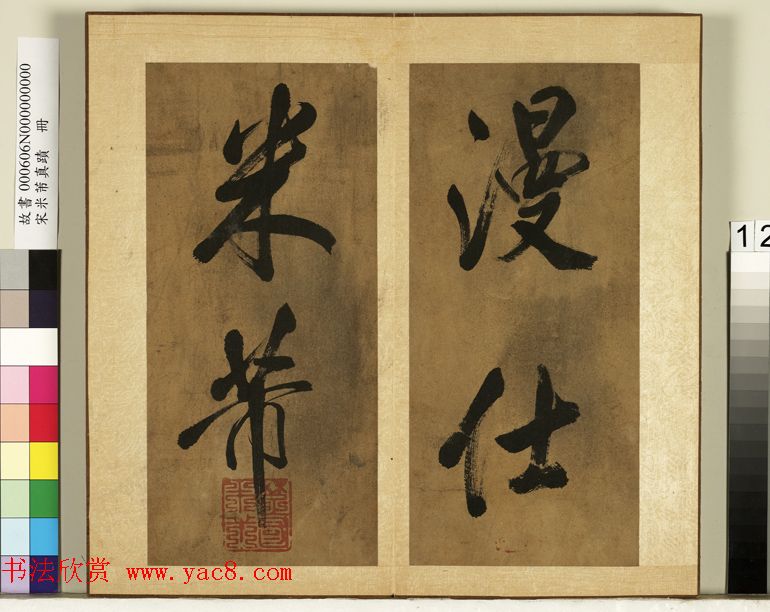 漫仕
米芾
故書 000606N000000000
宋米芾真蹟 冊
12
书法欣赏 www.yac8.com